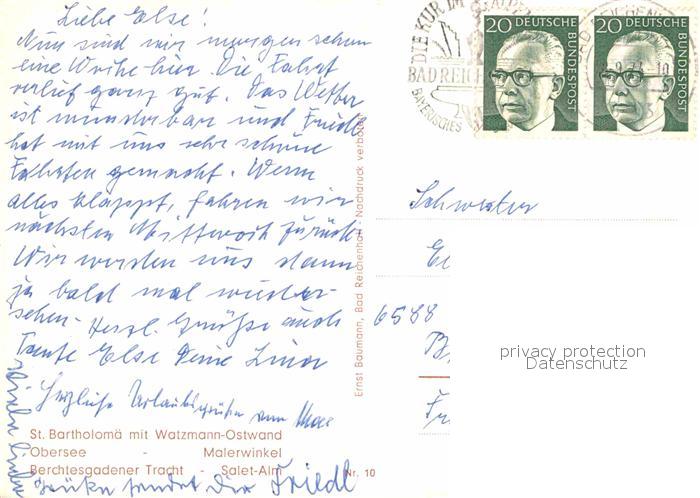 Liebe Else!
Nun sind wir morgen schon
eine Woche hier. Die Fahrt
verlief ganz gut. Das Wetter
ist wunderbar und Friedl
hat mit uns sehr schöne
Fahrten gemacht. Wenn
alles klappt, fahren wir
nächsten Mittwoch zurück.
Wir werden uns dann
ja bald mal wieder-
sehen. Herzl. Grüße auch
Tante Else Deine
Herzliche Urlaubsgrüße von
Grüße sendet dir Friedl
St. Bartholomä mit Watzmann-Ostwand
Obersee - Malerwinkel
Berchtesgadener Tracht - Salet-Alm Nr. 10
Ernst Baumann, Bad Reichenhall - Nachdruck verboten
DIE KUR IM
BAD REICH
BAYERISCHES
20 DEUTSCHE BUNDESPOST
20 DEUTSCHE BUNDESPOST
Schwester
6588
privacy protection
Datenschutz